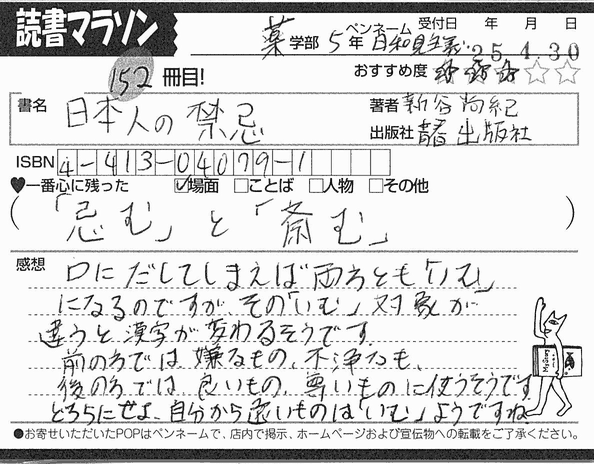 読書マラソン
薬 学部 5 年 ペンネーム 日和見主義 受付日 年 月 日 25.4.30
152 冊目! おすすめ度 ☆☆☆☆☆
書名 日本人の禁忌 著者名 新谷尚紀
出版社 青春出版社
ISBN 4-413-04079-1
♥一番心に残った ☑場面 □ことば □人物 □その他
(「忌む」と「斎む」)
感想 口にだしてしまえば両方とも「いむ」
になるのですが、その「いむ」対象が
違うと漢字が変わるそうです。
前の方では嫌なもの、不浄なも、
後の方では、良いもの、尊いものに使うそうです
どちらにせよ、自分から遠いものは「いむ」ようですね。
●お寄せいただいたPOPはペンネームで、店内で掲示、ホームページおよび宣伝物への転載をご了承ください。